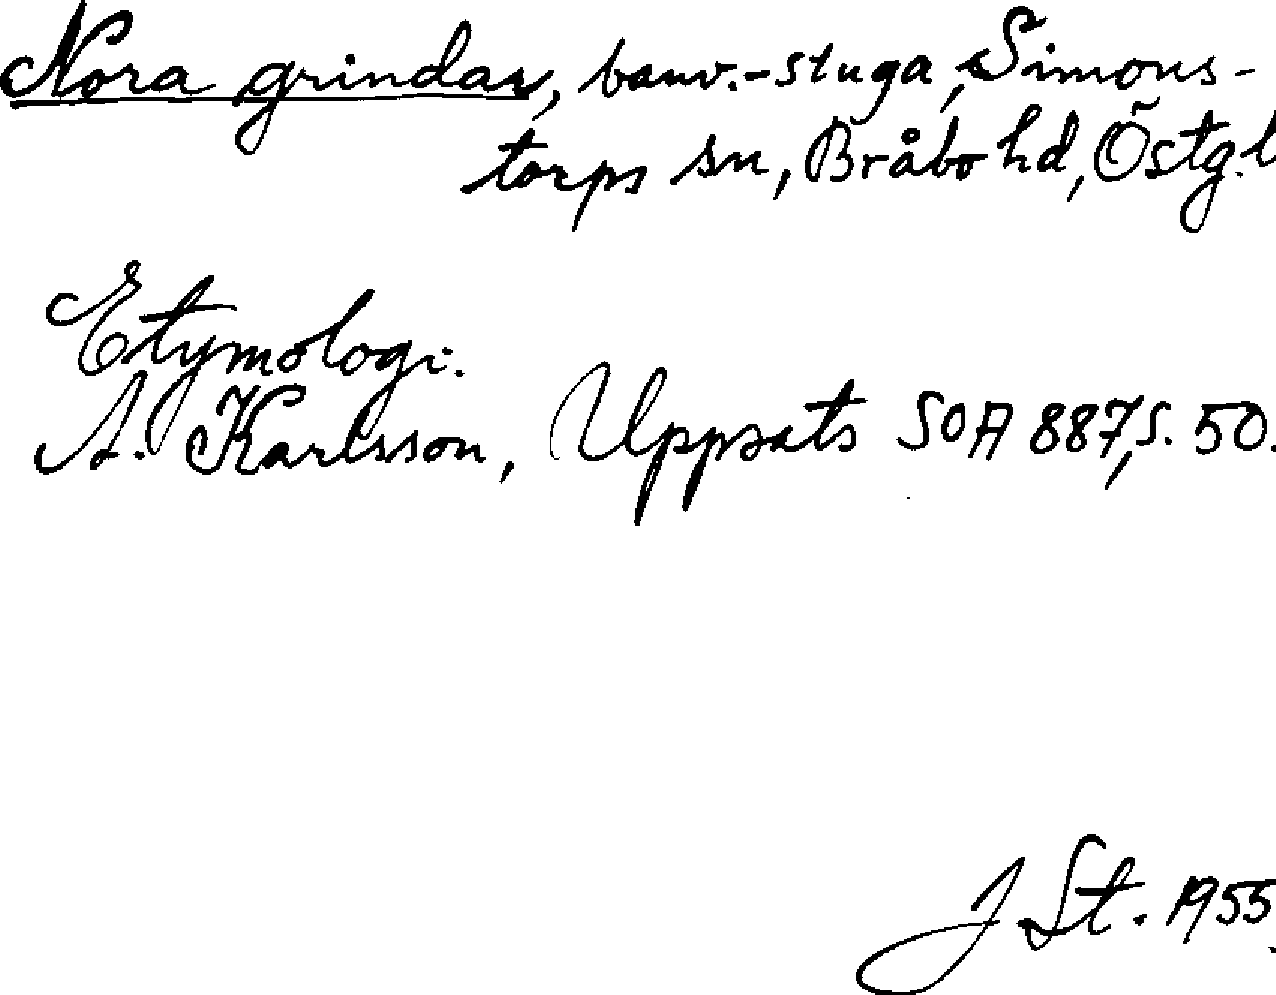 Nora grindar, banv.-stuga, Simons-
torps sn, Bråbo hd, Östg.l
Etymologi.
A. Karlsson, Uppsats SOA 887, S. 50.
J St. 1955.